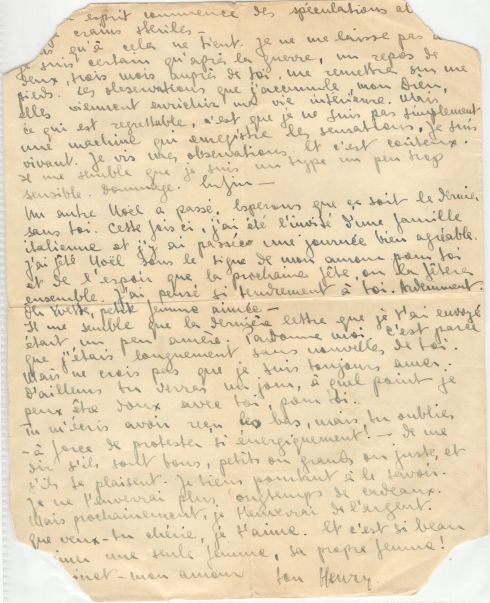 esprit commence des spéculations
crains stériles -
qu'à cela ne tient. Je ne me laisse pas
suis certain qu'après la guerre, un repos de
deux, trois mois auprès de toi, me remettra sur me
pieds. Les observations que j'accumule, mon Dieu,
elles viennent enrichir ma vie intérieure. Mais
ce qui est regrettable, c'est que je ne suis pas simplement
une machine qui enregistre les sensations, je suis
vivant. Je vis mes observations. Et c'est coûteux.
Il me semble que je suis un type un peu trop
sensible. Dommage. Enfin -
Un autre Noël a passé. Esperons que ça soit le dernier
sans toi. Cette fois ci, j'ai été l'invité d'une famille
italienne et j'y ai passée une journée bien agréable.
J'ai fêté Noël sous le signe de mon amour pour toi
et de l'espoir que la prochaine fête, on la fêtera
ensemble. J'ai pensé si tendrement à toi. Ardemment.
petite femme aimée -
Il me semble que la dernière lettre que je t'ai envoyé
était un peu amère. Pardonne moi, c'est parce
que j'étais longuement sans nouvelles de toi.
Mais ne crois pas que je suis toujours amer.
D'ailleurs tu verras un jour, à quel point je
peux être doux avec toi, pour toi.
Tu m'écris avoir reçu les bas, mais tu oublies
- à force de protester si énergiquement! - de me
dir s'ils sont bons, petits ou grands ou juste, et
s'ils te plaisent. Je tiens pourtant à le savoir.
Je ne t'enverrai plus longtemps de cadeaux.
Mais prochainement, je t'enverrai de l'argent.
Que veux-tu chérie, je t'aime. Et c'est si beau
aimer une seule femme, sa propre femme!
mon amour ton Henry.